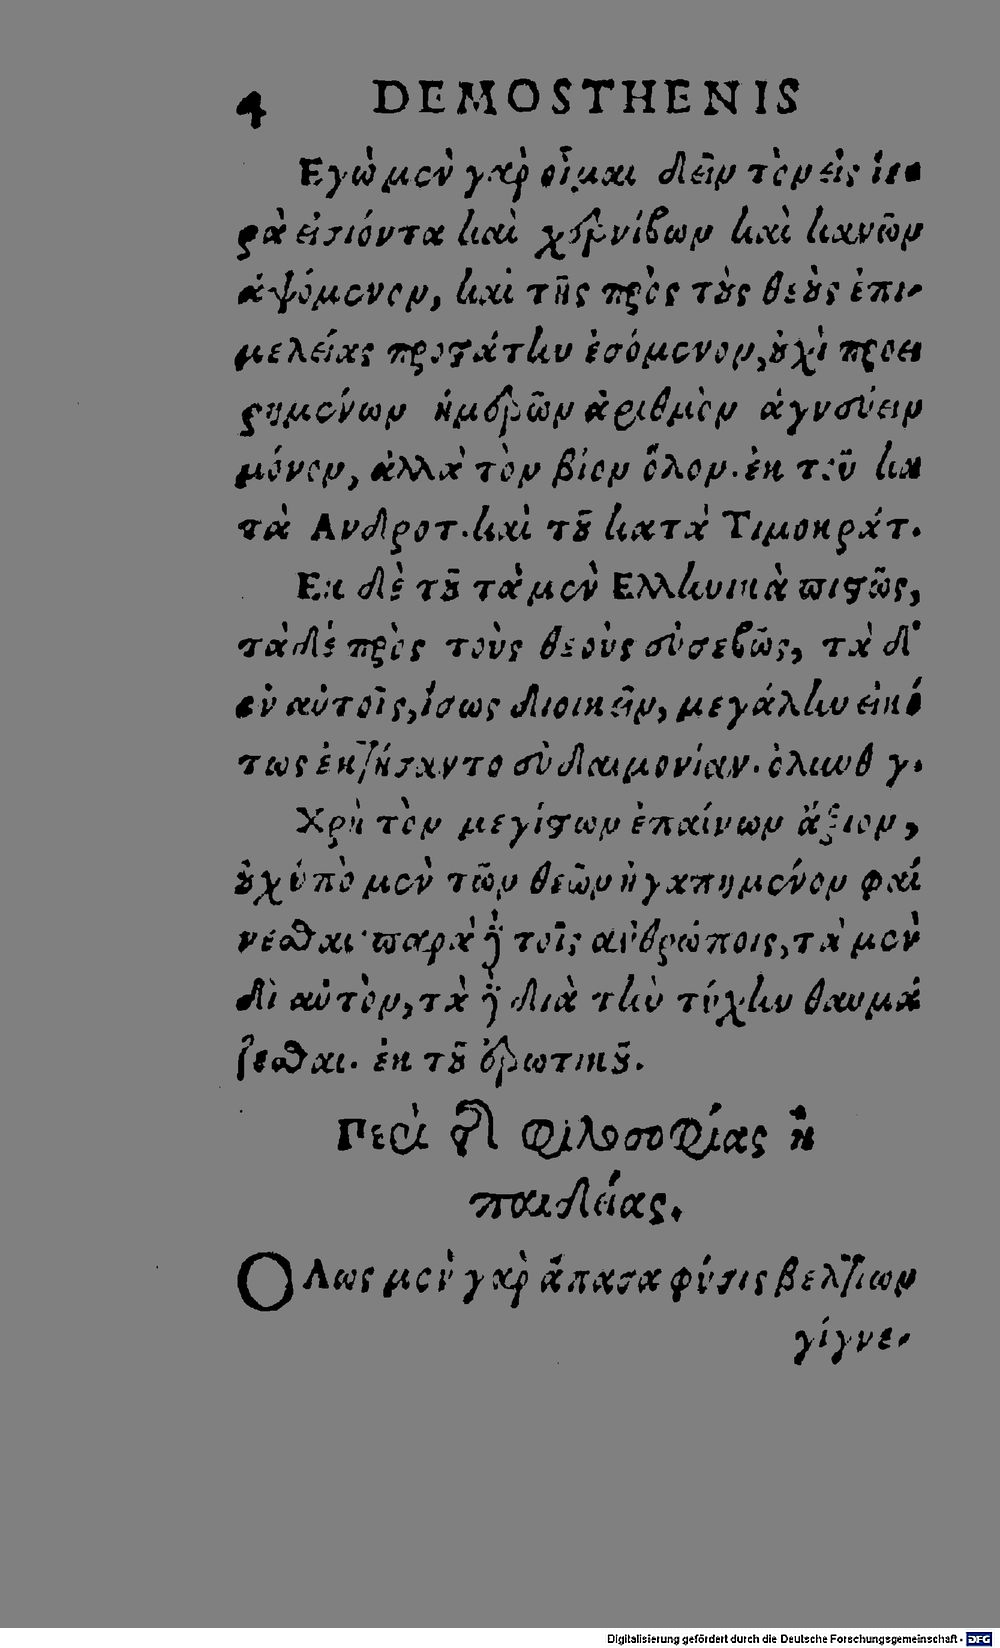 4 DEMOSTHENIS
Εγὼ μὲν γὰρ οἶμαι δεῖν τὸν εἰς ἱε-
ρὰ εἰσιόντα καὶ χερνίβων καὶ κανῶν
ἁψόμενον, καὶ τῆς πρὸς τοὺς θεοὺς ἐπι-
μελείας προστάτην ἐσόμενον, οὐχὶ προει
ρημένων ἡμερῶν ἀριθμὸν ἁγνεύειν
μόνον, ἀλλὰ τὸν βίον ὅλον. ἐκ τοῦ κα
τὰ Ανδροτ. καὶ τοῦ κατὰ Τιμοκράτ.
Εκ δὲ τοῦ τὰ μὲν Ελληνικὰ πιστῶς,
τὰ δὲ πρὸς τοὺς θεοὺς εὐσεβῶς, τὰ δ'
ἐν αὑτοῖς, ἴσως διοικεῖν, μεγάλην εἰκό
τως ἐκτήσαντο εὐδαιμονίαν. ὀλυνθ γ.
Χρὴ τὸν μεγίστων ἐπαίνων ἄξιον,
οὐχ ὑπὸ μὲν τῶν θεῶν ἠγαπημένον φαί
νεσθαι· παρὰ δὲ τοῖς ἀνθρώποις, τὰ μὲν
δι αὑτὸν, τὰ δὲ διὰ τὴν τύχην θαυμά
ζεσθαι. ἐκ τοῦ ἐρωτικοῦ.
Περὶ τῆς Φιλοσοφίας ἢ
παιδείας.
ΟΛως μὲν γὰρ ἅπασα φύσις βελτίων
γίγνε-
Digitalisierung gefördert durch die Deutsche Forschungsgemeinschaft - DFG